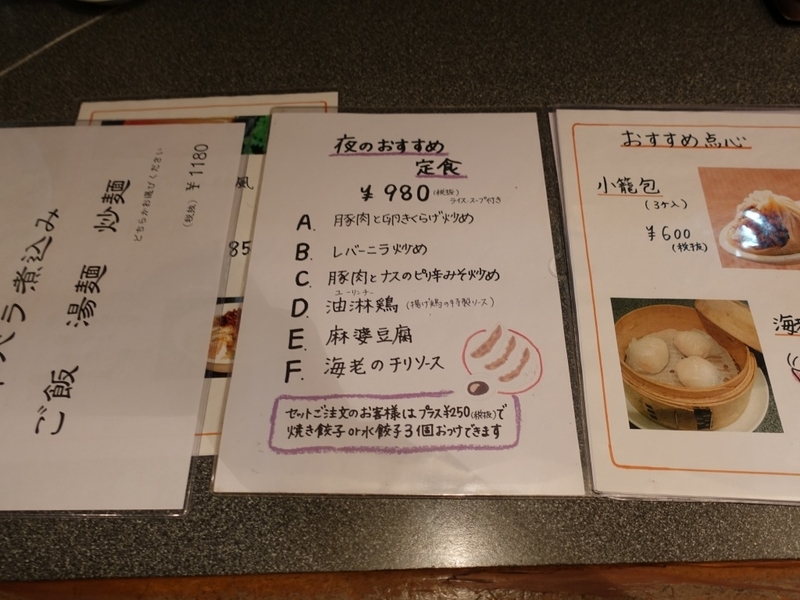 ラ煮込み
ご飯 湯麺 炒麺
どちらかお選びください
(税抜) ¥1180
風
85
夜のおすすめ
定食
¥980(税抜)
ライス、スープ付き
A. 豚肉と卵きくらげ炒め
B. レバーニラ炒め
C. 豚肉とナスのピリ辛みそ炒め
ユーリンチー
D. 油淋鶏(揚げ鶏の手製ソース)
E. 麻婆豆腐
F. 海老のチリソース
セットご注文のお客様はプラス¥250(税抜)で
焼き餃子or水餃子3個おつけできます
おすすめ点心
小籠包
(3ヶ入)
¥600
(税抜)
海